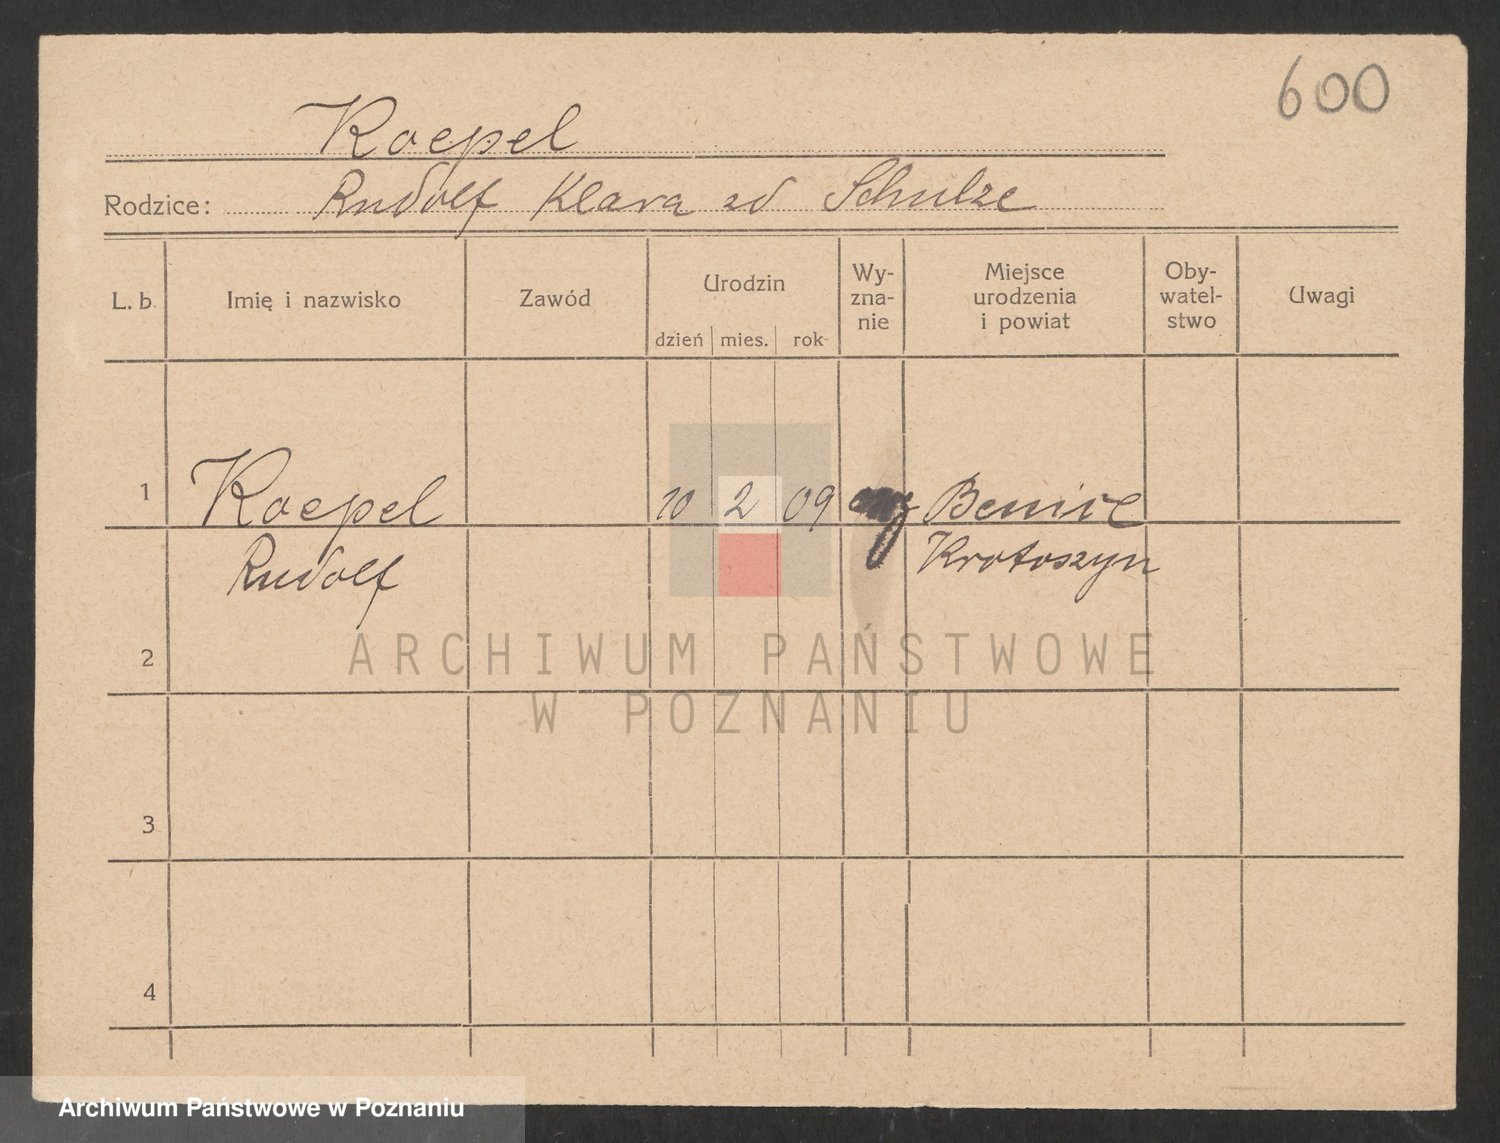 600
Koepel
Rodzice: Rudolf Klara zd Schulze
L. b. Imię i nazwisko Zawód Urodzin dzień mies. rok Wy-zna-nie Miejsce urodzenia i powiat Oby-watel-stwo Uwagi
1 Koepel 10 2 09 Benice
Rudolf Krotoszyn
2
3
4
ARCHIWUM PAŃSTWOWE
W POZNANIU
Archiwum Państwowe w Poznaniu